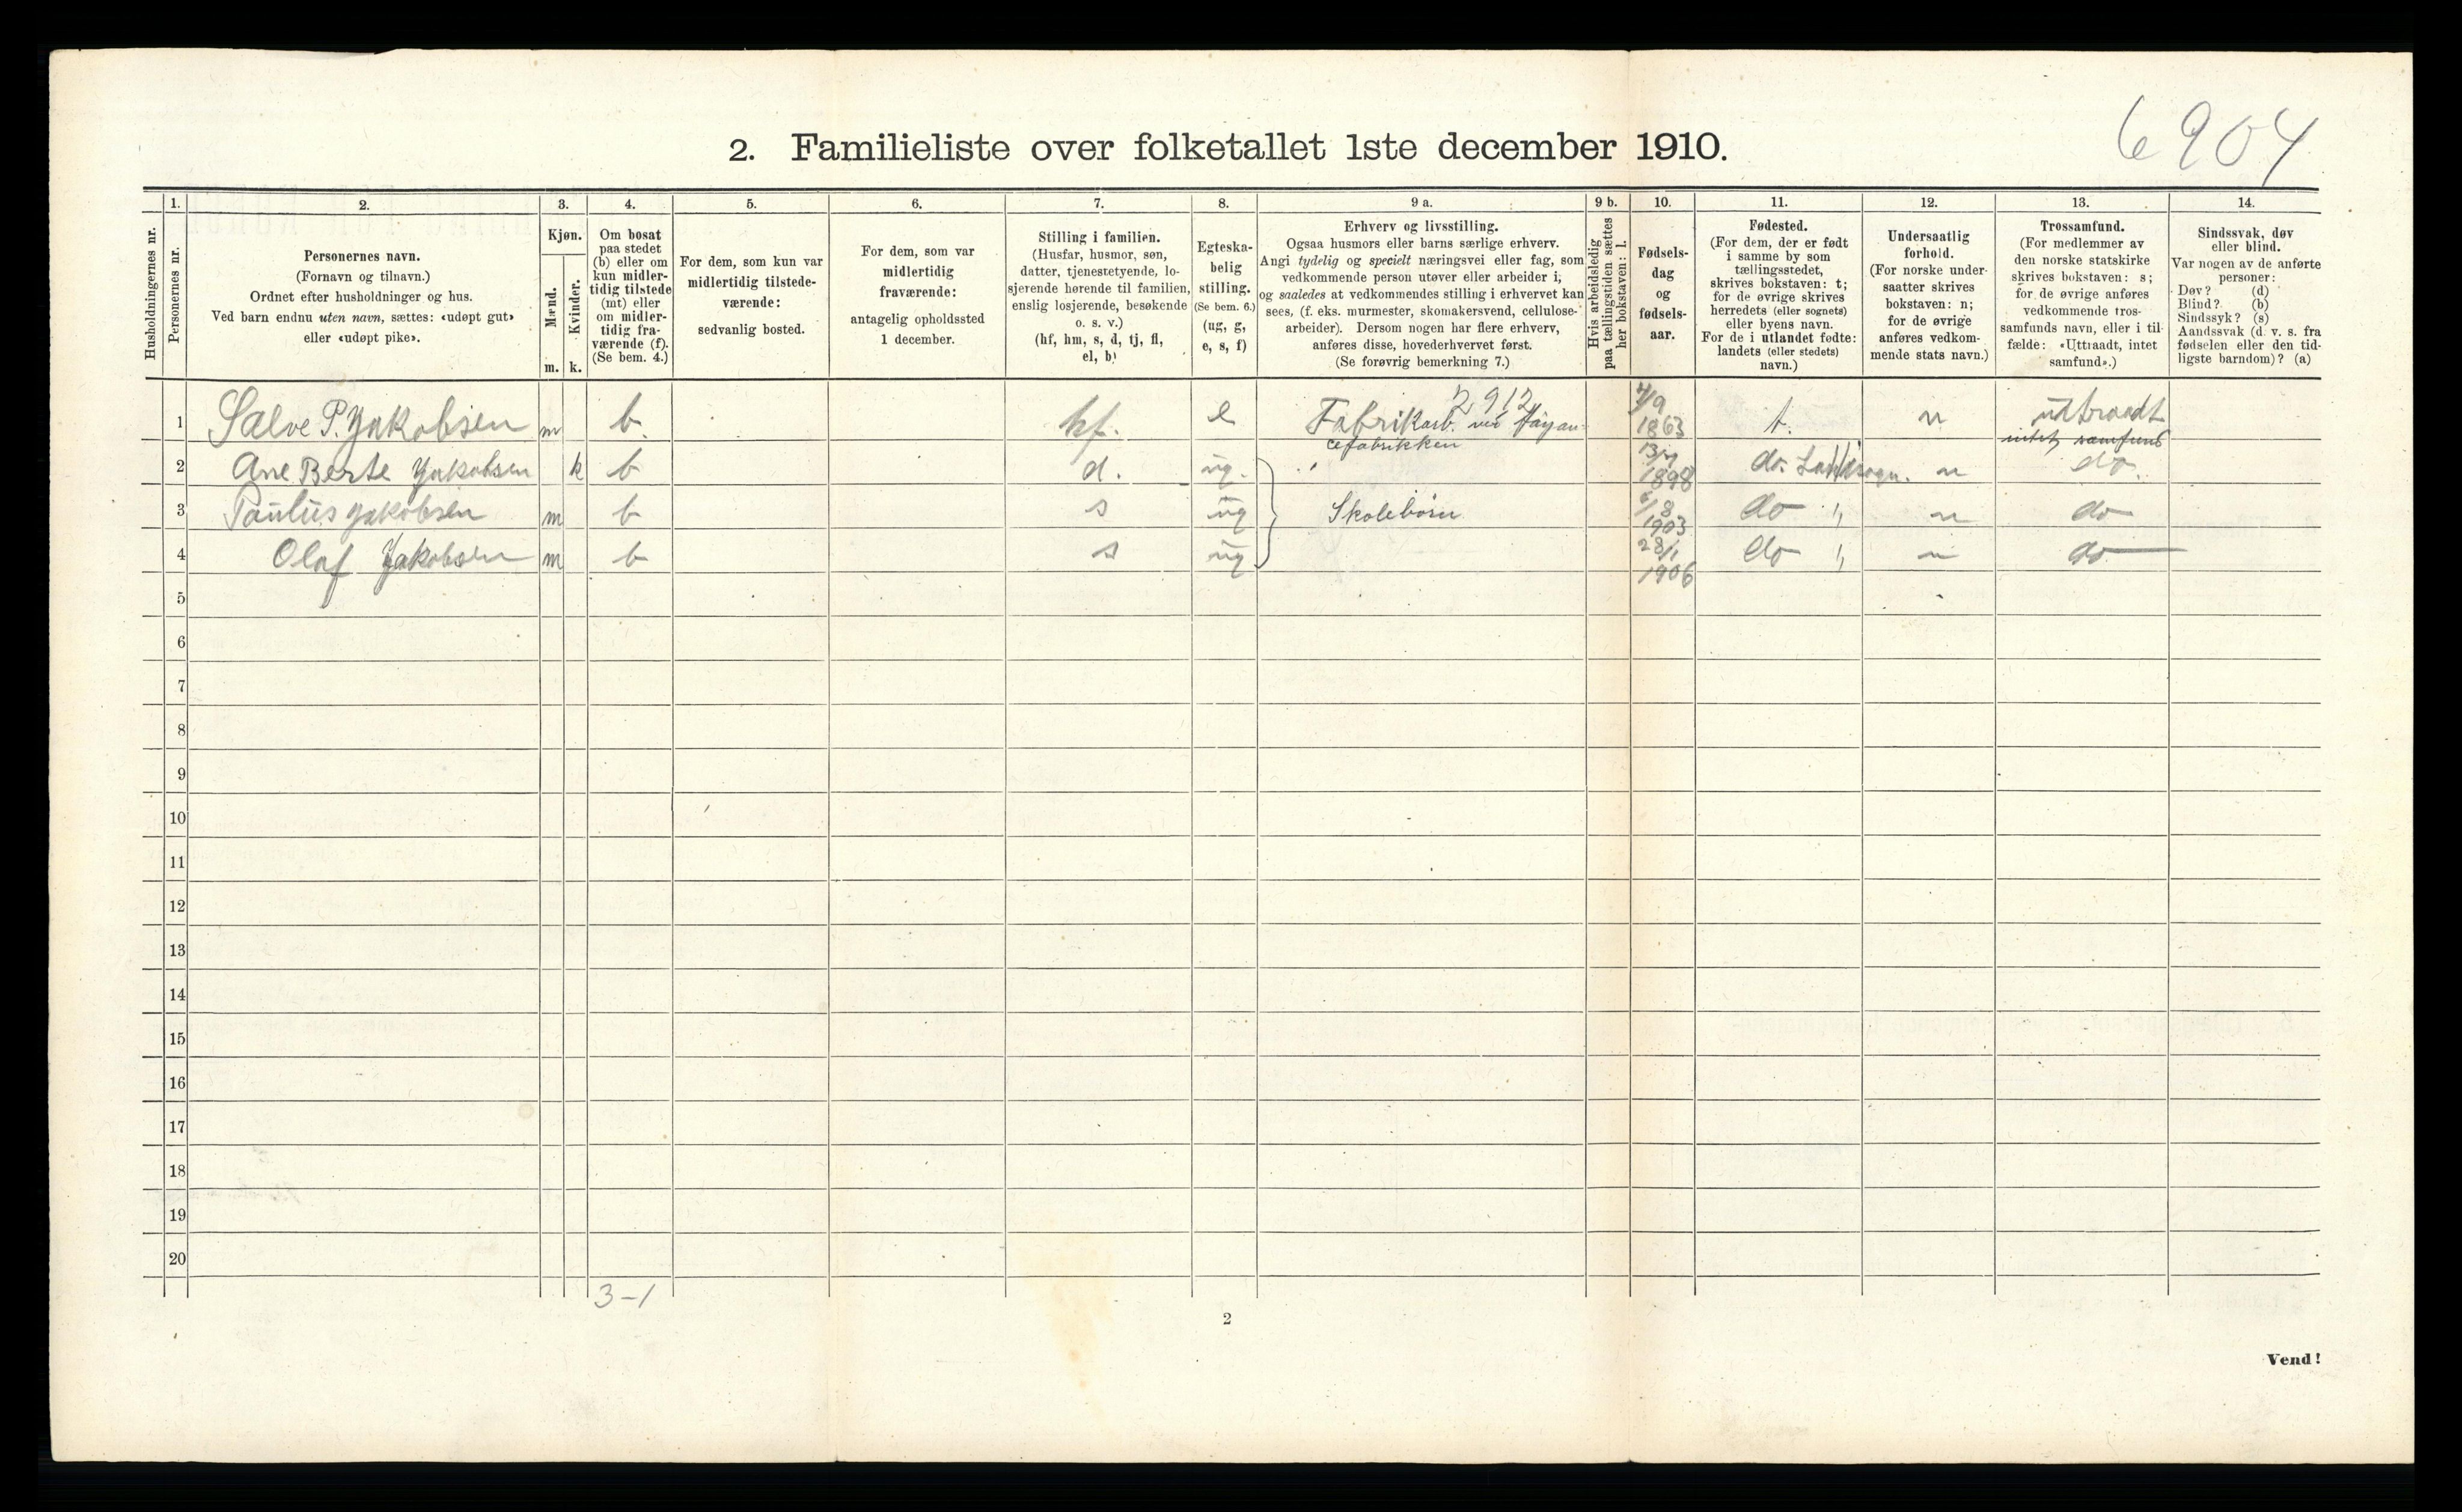 6904
2. Familieliste over folketallet 1ste december 1910.
Husholdningernes nr.
1.
Personernes nr.
2.
Personernes navn.
(Fornavn og tilnavn.)
Ordnet efter husholdninger og hus.
Ved barn endnu uten navn, sættes: «udøpt gut»
eller «udøpt pike».
3.
Kjøn.
Mænd.
m.
Kvinder.
k.
4.
Om bosat
paa stedet
(b) eller om
kun midler-
tidig tilstede
(mt) eller
om midler-
tidig fra-
værende (f).
(Se bem. 4.)
5.
For dem, som kun var
midlertidig tilstede-
værende:
sedvanlig bosted.
6.
For dem, som var
midlertidig
fraværende:
antagelig opholdssted
1 december.
7.
Stilling i familien.
(Husfar, husmor, søn,
datter, tjenestetyende, lo-
sjerende hørende til familien,
enslig losjerende, besøkende
o. s. v.)
(hf, hm, s, d, tj, fl,
el, b)
8.
Egteska-
belig
stilling.
(Se bem. 6.)
(ug, g,
e, s, f)
9 a.
Erhverv og livsstilling.
Ogsaa husmors eller barns særlige erhverv.
Angi tydelig og specielt næringsvei eller fag, som
vedkommende person utøver eller arbeider i,
og saaledes at vedkommendes stilling i erhvervet kan
sees, (f. eks. murmester, skomakersvend, cellulose-
arbeider). Dersom nogen har flere erhverv,
anføres disse, hovederhvervet først.
(Se forøvrig bemerkning 7.)
9 b.
Hvis arbeidsledig
paa tællingstiden sættes
her bokstaven: l.
10.
Fødsels-
dag
og
fødsels-
aar.
11.
Fødested.
(For dem, der er født
i samme by som
tællingsstedet,
skrives bokstaven: t;
for de øvrige skrives
herredets (eller sognets)
eller byens navn.
For de i utlandet fødte:
landets (eller stedets)
navn.)
12.
Undersaatlig
forhold.
(For norske under-
saatter skrives
bokstaven: n;
for de øvrige
anføres vedkom-
mende stats navn.)
13.
Trossamfund.
(For medlemmer av
den norske statskirke
skrives bokstaven: s;
for de øvrige anføres
vedkommende tros-
samfunds navn, eller i til-
fælde: «Uttraadt, intet
samfund».)
14.
Sindssvak, døv
eller blind.
Var nogen av de anførte
personer:
Døv? (d)
Blind? (b)
Sindssyk? (s)
Aandssvak (d. v. s. fra
fødselen eller den tid-
ligste barndom)? (a)
2912
1 Salve P. Yakobsen m b. hf. e Fabrikarb. ved Fayan- 4/9 t. n udtraadt
cefabrikken 1863 intet samfund
2 Ane Berte Yakobsen k b d. ug. 1898 do. n do.
3 Paulus Yakobsen m b s ug Skolebörn 6/8 1903 do " n do
4 Olaf Yakobsen m b s ug 28/1 1906 do " n do
5
6
7
8
9
10
11
12
13
14
15
16
17
18
19
20
3-1
2
Vend!